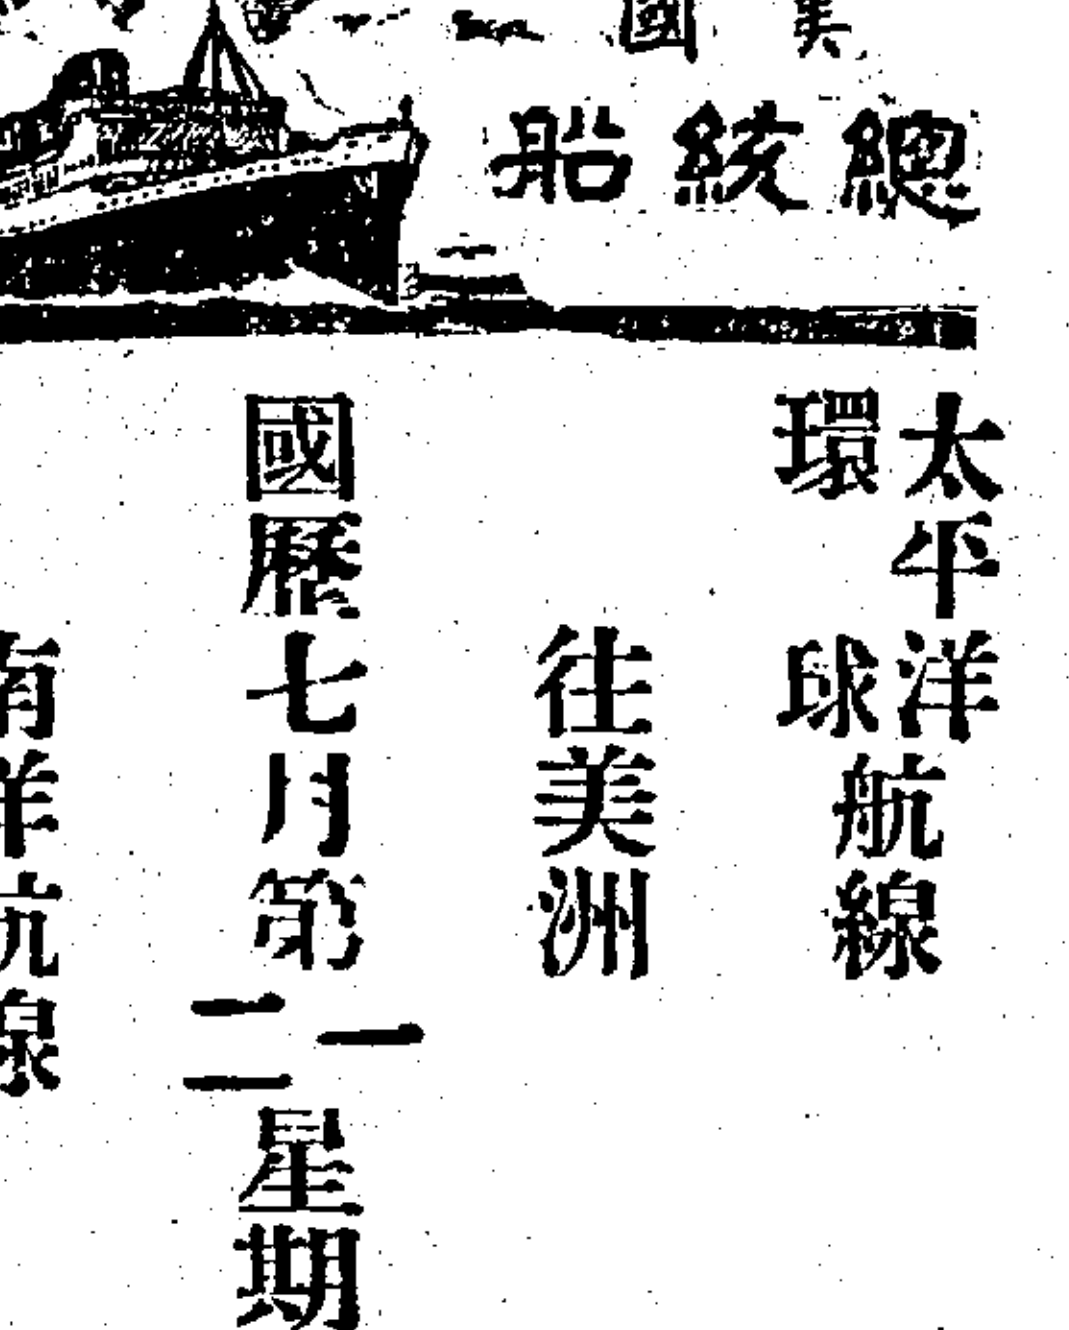 美國
總統船
太平洋
環球
航線
往美洲
國曆七月第
一
二
星期
南洋航線